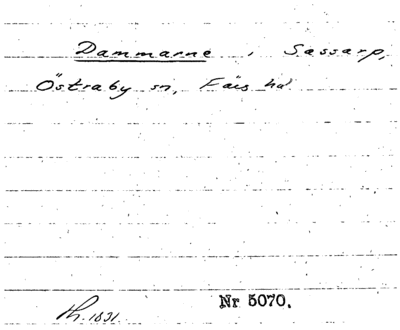 Dammarne, Sassarp,
Östraby sn, Färs hd
Nr 5070.
1831.